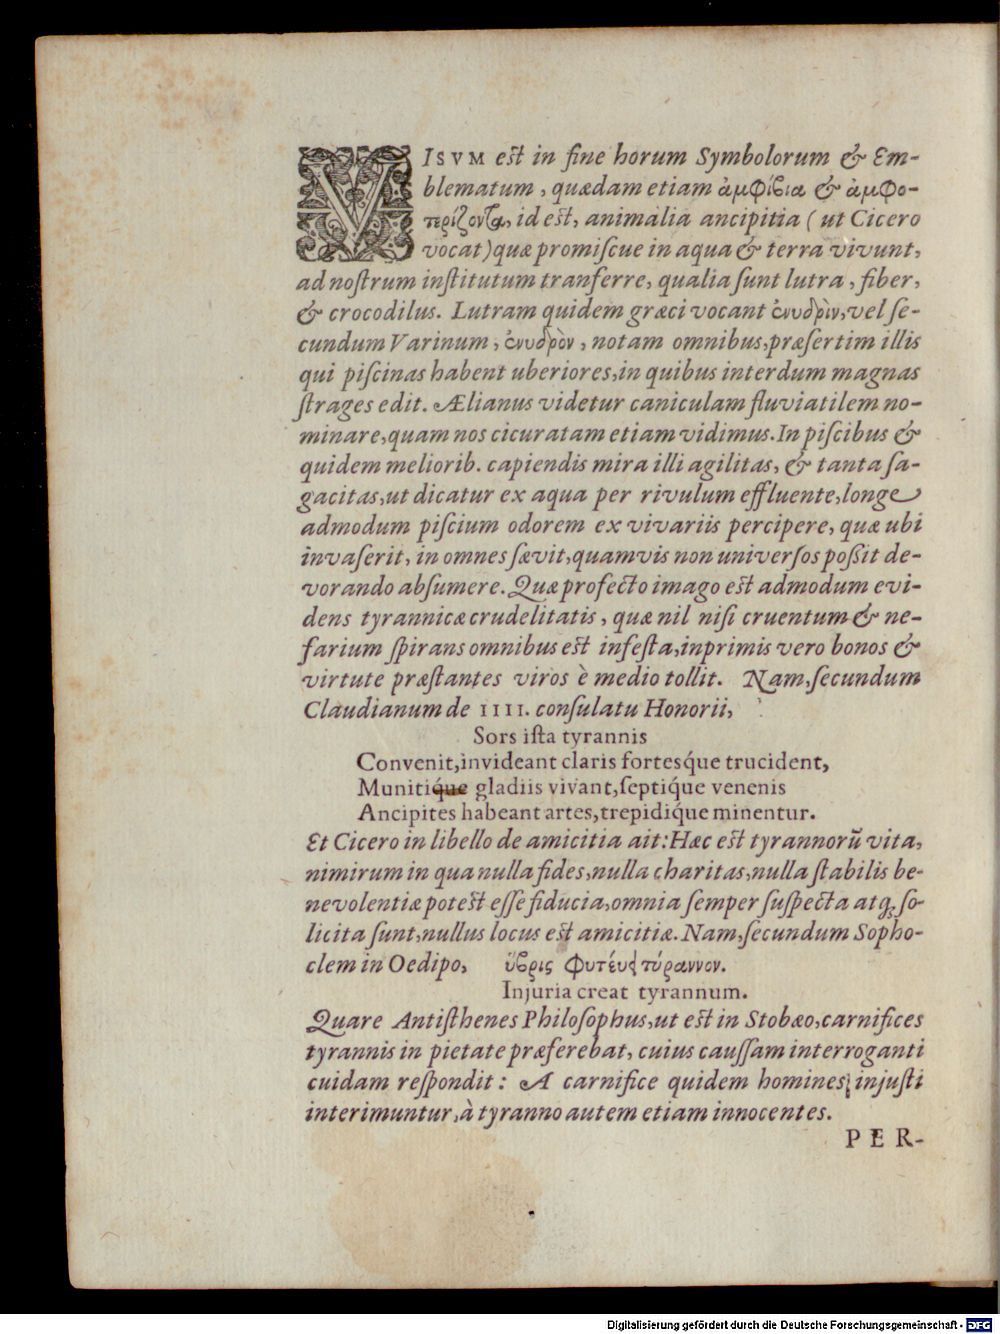 VISVM est in fine horum Symbolorum & Em-
blematum, quædam etiam ἀμφίβια & ἀμφο-
τερίζοντα, id est, animalia ancipitia (ut Cicero
vocat) quæ promiſcue in aqua & terra vivunt,
ad noſtrum inſtitutum tranferre, qualia ſunt lutra, fiber,
& crocodilus. Lutram quidem græci vocant ἐνυδρὶν, vel ſe-
cundum Varinum, ἐνυδρὸν, notam omnibus, præſertim illis
qui piſcinas habent uberiores, in quibus interdum magnas
ſtrages edit. Ælianus videtur caniculam fluviatilem no-
minare, quam nos cicuratam etiam vidimus. In piſcibus &
quidem meliorib. capiendis mira illi agilitas, & tanta ſa-
gacitas, ut dicatur ex aqua per rivulum effluente, longe
admodum piſcium odorem ex vivariis percipere, quæ ubi
invaſerit, in omnes ſævit, quamvis non univerſos poßit de-
vorando abſumere. Quæ profecto imago est admodum evi-
dens tyrannicæ crudelitatis, quæ nil niſi cruentum & ne-
farium ſpirans omnibus est infeſta, inprimis vero bonos &
virtute præſtantes viros è medio tollit. Nam, ſecundum
Claudianum de IIII. conſulatu Honorii,
Sors iſta tyrannis
Convenit, invideant claris fortesq́ue trucident,
Munitiq́ue gladiis vivant, ſeptiq́ue venenis
Ancipites habeant artes, trepidiq́ue minentur.
Et Cicero in libello de amicitia ait: Hæc est tyrannorũ vita,
nimirum in qua nulla fides, nulla charitas, nulla ſtabilis be-
nevolentiæ potest eſſe fiducia, omnia ſemper ſuſpecta atq; ſo-
licita ſunt, nullus locus est amicitiæ. Nam, ſecundum Sopho-
clem in Oedipo, ὕβρις φυτεύει τύραννον.
Injuria creat tyrannum.
Quare Antiſthenes Philoſophus, ut est in Stobæo, carnifices
tyrannis in pietate præferebat, cuius cauſſam interroganti
cuidam reſpondit: A carnifice quidem homines injuſti
interimuntur, à tyranno autem etiam innocentes.
PER-
Digitalisierung gefördert durch die Deutsche Forschungsgemeinschaft - DFG